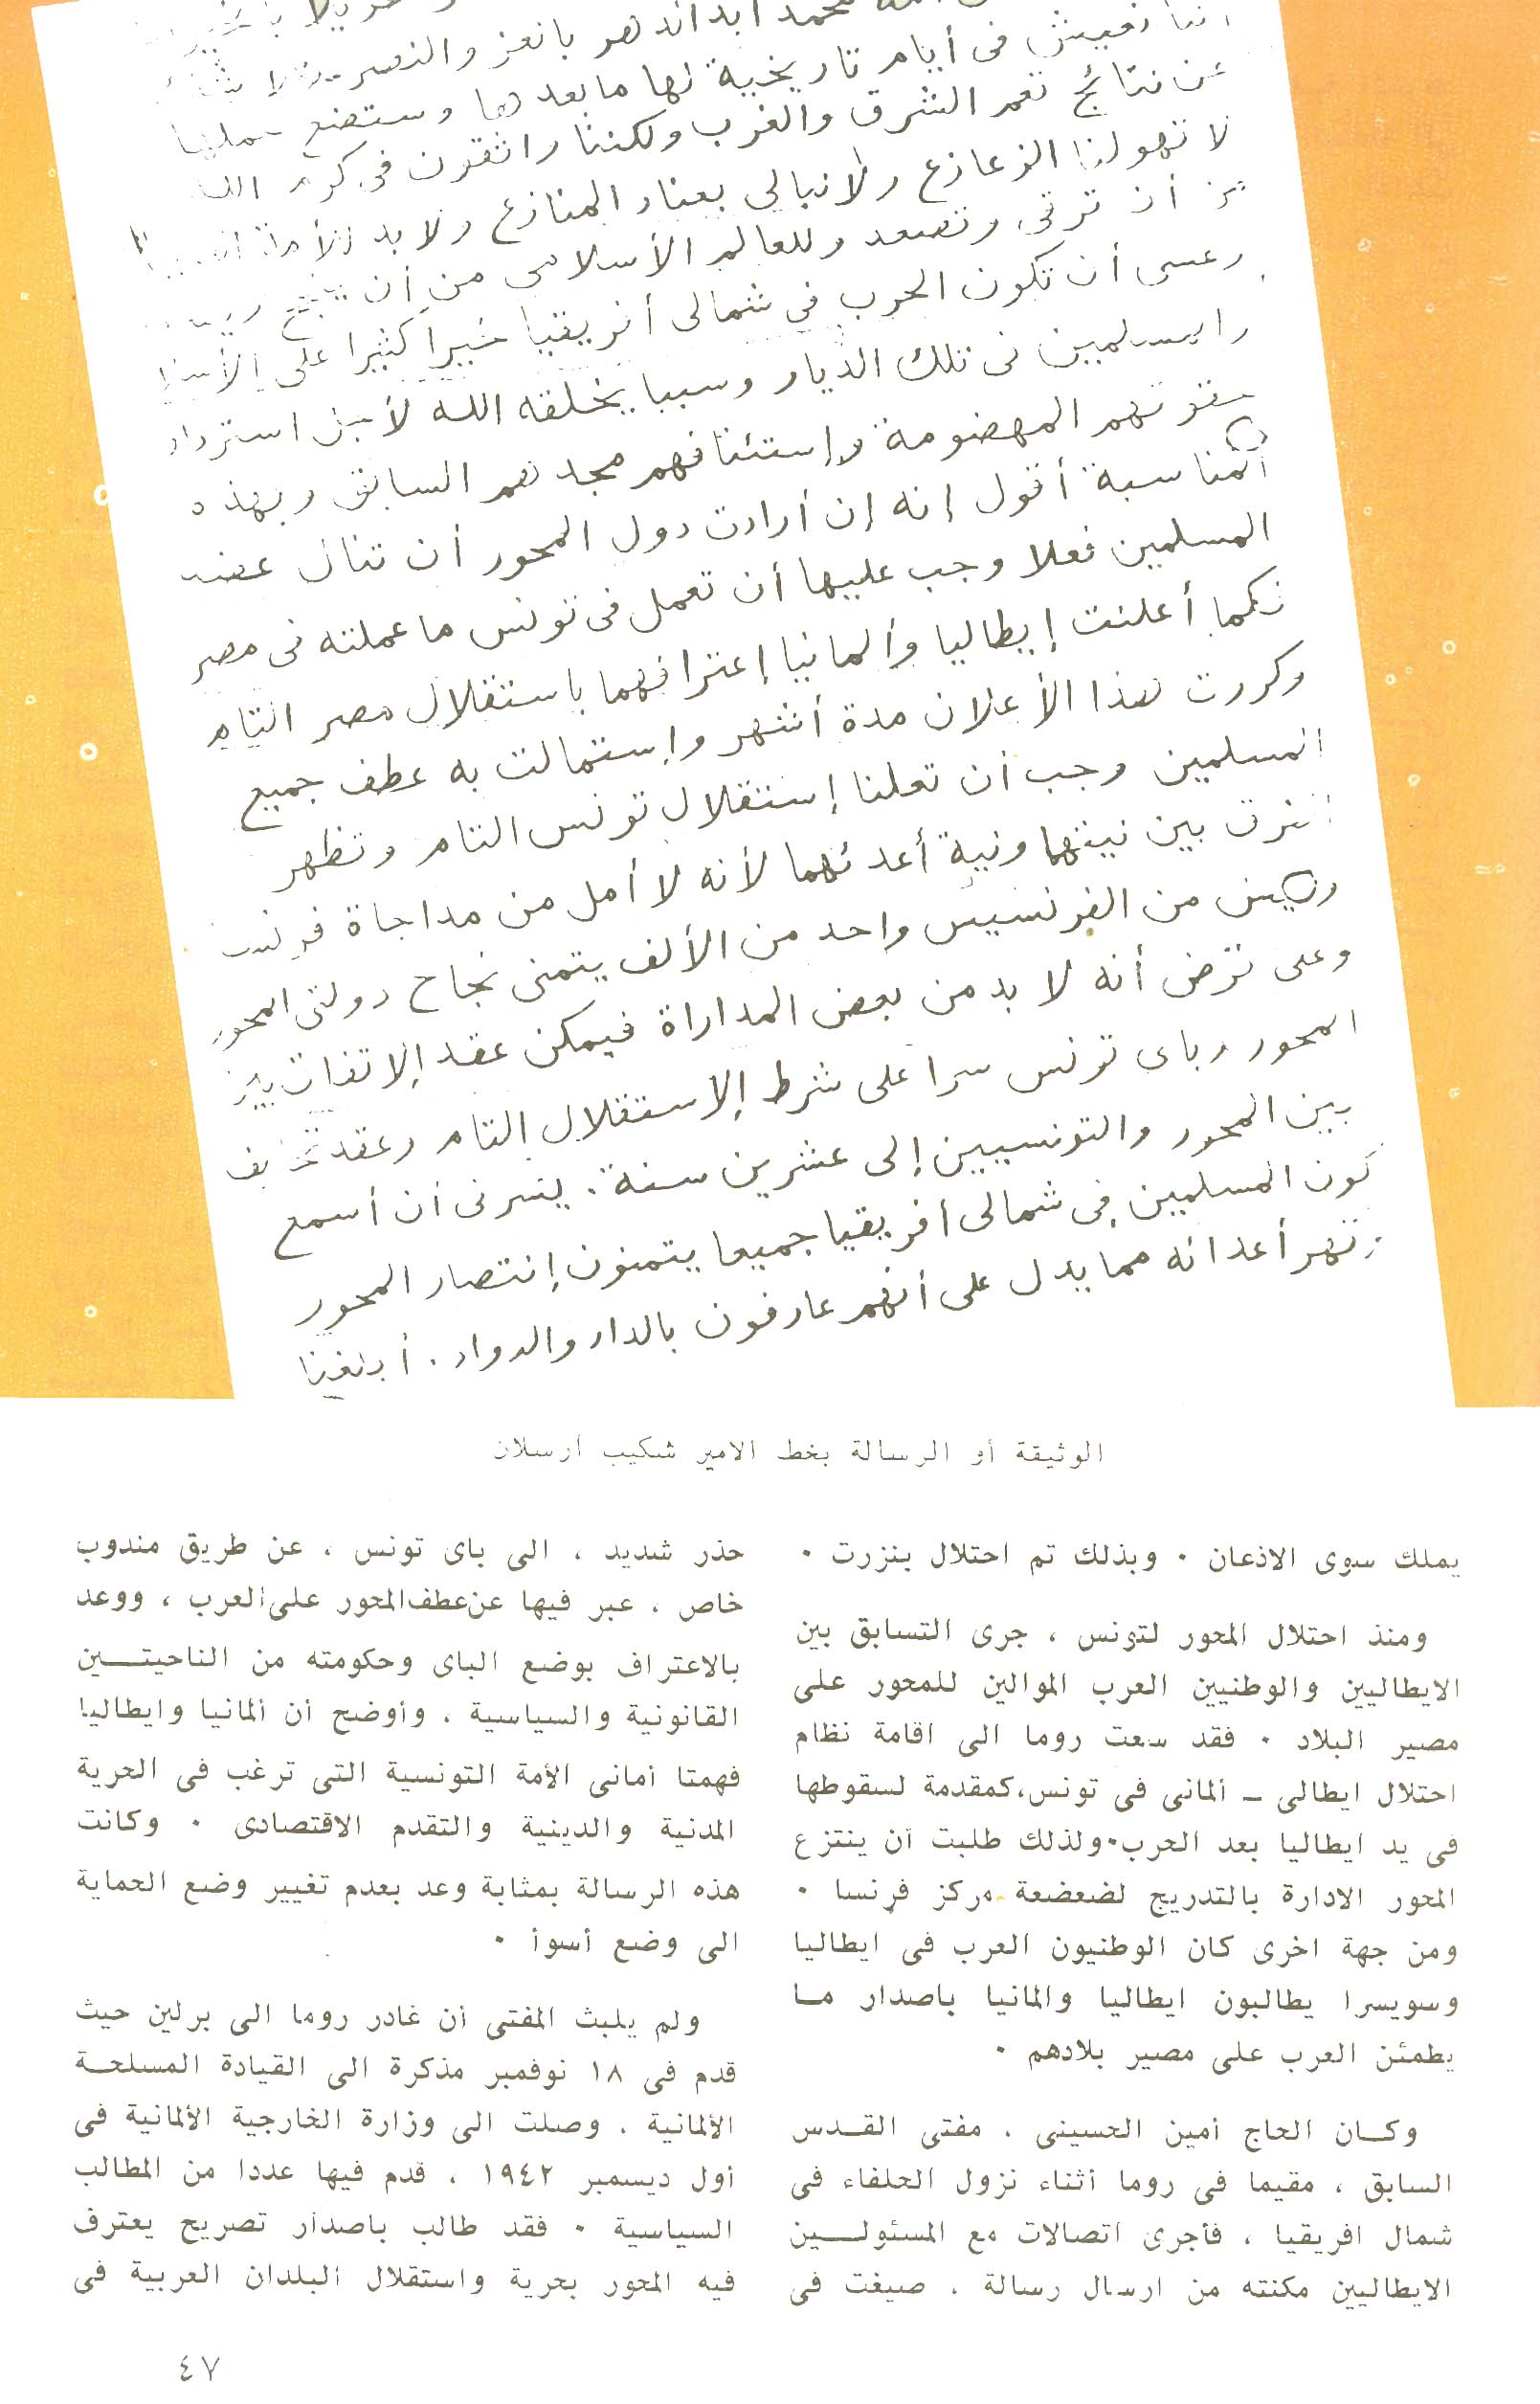 إننا نعيش فى أيام تاريخية لها ما بعدها وستضع
عن نتائج تعم الشرق والغرب ولكننا واثقون فى كرم الله
لا تهولنا الزعازع ولا نبالى بعناد المنازع ولا بد للأمة
من أن ترقى وتصعد وللعالم الأسلامى من أن
وعسى أن تكون الحرب فى شمالى أفريقيا خيراً كثيرا على
والمسلمين فى تلك الديار وسببا يخلقه الله لأجل استرداد
حقوقهم المهضومة وإستئنافهم مجدهم السابق وبهذه
المناسبة أقول إنه إن أرادت دول المحور أن تنال عضد
المسلمين فعلا وجب عليها أن تعمل فى تونس ما عملته فى مصر
فكما أعلنت إيطاليا وألمانيا إعترافهما باستقلال مصر التام
وكررت هذا الأعلان مدة أشهر وإستمالت به عطف جميع
المسلمين وجب أن تعلنا إستقلال تونس التام وتظهر
الفرق بين نيتهما ونية أعدئهما لأنه لا أمل من مداجاة فرنسا
وليس من الفرنسيس واحد من الألف يتمنى نجاح دولتى المحور
وعلى فرض أنه لا بد من بعض المداراة فيمكن عقد الإتفاق بين
المحور وباى تونس سرا على شرط الإستقلال التام وعقد
بين المحور والتونسيين إلى عشرين سنة . يسرنى أن أسمع
كون المسلمين فى شمالى أفريقيا جميعا يتمنون إنتصار المحور
وقهر أعدائه مما يدل على أنهم عارفون بالداء والدواء .
الوثيقة أو الرسالة بخط الامير شكيب ارسلان
يملك سوى الاذعان ٠ وبذلك تم احتلال بنزرت ٠
ومنذ احتلال المحور لتونس ، جرى التسابق بين
الايطاليين والوطنيين العرب الموالين للمحور على
مصير البلاد ٠ فقد سعت روما الى اقامة نظام
احتلال ايطالى – ألمانى فى تونس،كمقدمة لسقوطها
فى يد ايطاليا بعد الحرب٠ولذلك طلبت أن ينتزع
المحور الادارة بالتدريج لضعضعة مركز فرنسا ٠
ومن جهة اخرى كان الوطنيون العرب فى ايطاليا
وسويسرا يطالبون ايطاليا والمانيا باصدار مـا
يطمئن العرب على مصير بلادهم ٠
وكـان الحاج أمين الحسينى ، مفتى القـدس
السابق ، مقيما فى روما أثناء نزول الحلفاء فى
شمال افريقيا ، فأجرى اتصالات مع المسئولـين
الايطاليين مكنته من ارسال رسالة ، صيغت فى
حذر شديد ، الى باى تونس ، عن طريق مندوب
خاص ، عبر فيها عن عطف المحور على العرب ، ووعد
بالاعتراف بوضع الباى وحكومته من الناحيتـين
القانونية والسياسية ، وأوضح أن ألمانيا وايطاليا
فهمتا أمانى الأمة التونسية التى ترغب فى الحرية
المدنية والدينية والتقدم الاقتصادى ٠ وكانت
هذه الرسالة بمثابة وعد بعدم تغيير وضع الحماية
الى وضع أسوأ ٠
ولم يلبث المفتى أن غادر روما الى برلين حيث
قدم فى ١٨ نوفمبر مذكرة الى القيادة المسلحـة
الألمانية ، وصلت الى وزارة الخارجية الألمانية فى
أول ديسمبر ١٩٤٢ ، قدم فيها عددا من المطالب
السياسية ٠ فقد طالب باصدار تصريح يعترف
فيه المحور بحرية واستقلال البلدان العربية فى
٤٧